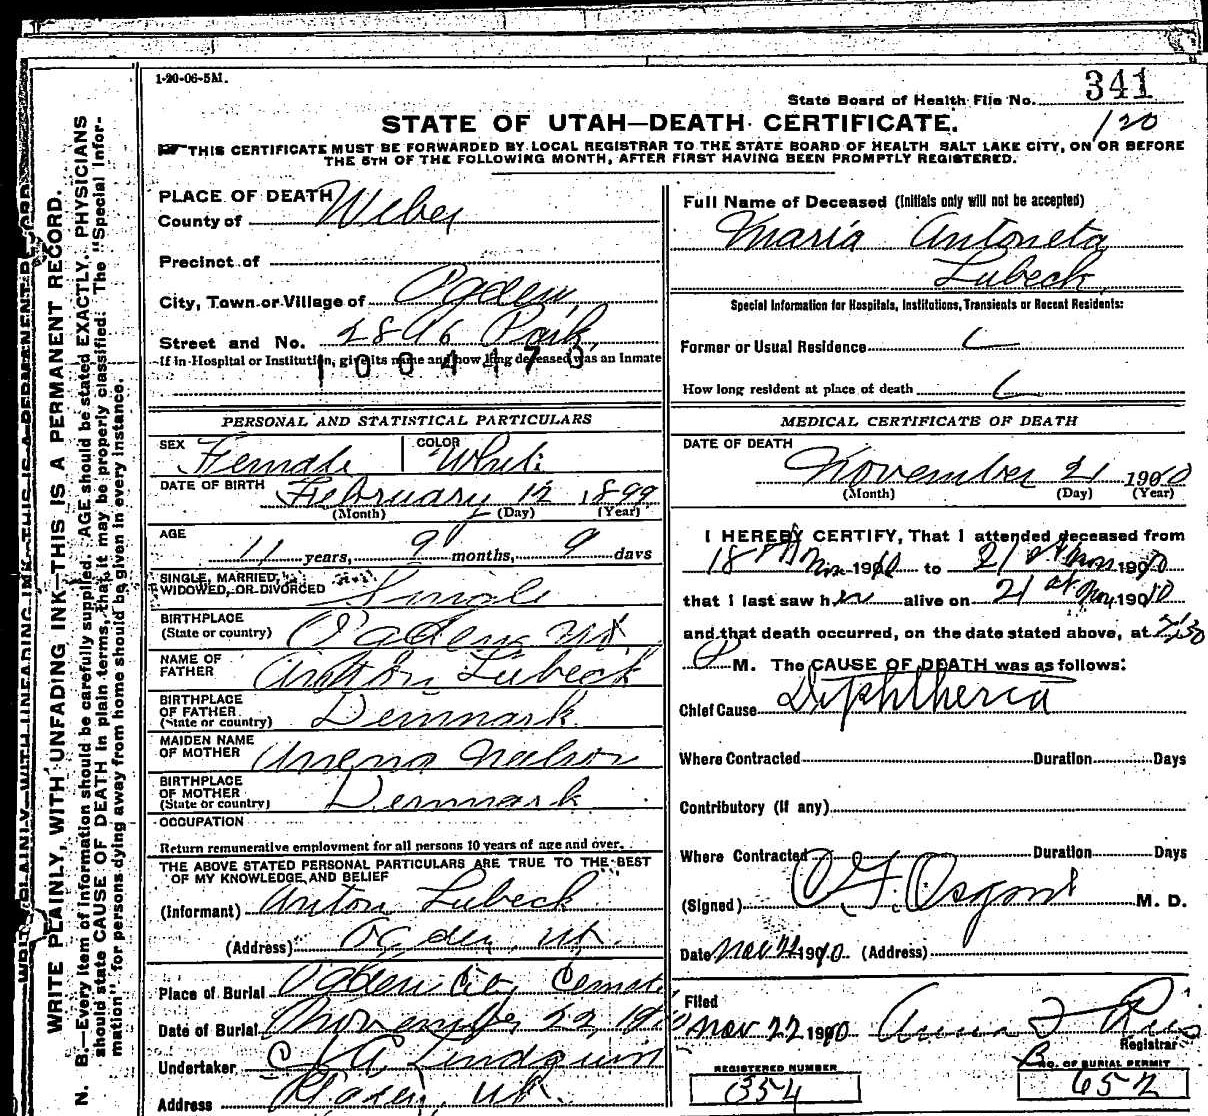 1-20-06-5M.
State Board of Health File No. 341
120
STATE OF UTAH—DEATH CERTIFICATE.
THIS CERTIFICATE MUST BE FORWARDED BY LOCAL REGISTRAR TO THE STATE BOARD OF HEALTH SALT LAKE CITY, ON OR BEFORE
THE 5TH OF THE FOLLOWING MONTH, AFTER FIRST HAVING BEEN PROMPTLY REGISTERED.
WRITE PLAINLY, WITH UNFADING INK—THIS IS A PERMANENT RECORD.
N. B.—Every item of information should be carefully supplied. AGE should be stated EXACTLY. PHYSICIANS
should state CAUSE OF DEATH in plain terms, that it may be properly classified. The "Special Infor-
mation" for persons dying away from home should be given in every instance.
PLACE OF DEATH
County of Weber
Precinct of
City, Town or Village of Ogden
Street and No. 2896 Park
If in Hospital or Institution, give its name and how long deceased was an Inmate
1004170
PERSONAL AND STATISTICAL PARTICULARS
SEX Female COLOR White
DATE OF BIRTH February 12 1899
(Month) (Day) (Year)
AGE 11 years, 9 months, 9 days
SINGLE, MARRIED,
WIDOWED, OR DIVORCED Single
BIRTHPLACE
(State or country) Ogden Ut
NAME OF
FATHER Anton Lubeck
BIRTHPLACE
OF FATHER
(State or country) Denmark
MAIDEN NAME
OF MOTHER Anena Neilson
BIRTHPLACE
OF MOTHER
(State or country) Denmark
OCCUPATION
Return remunerative employment for all persons 10 years of age and over.
THE ABOVE STATED PERSONAL PARTICULARS ARE TRUE TO THE BEST
OF MY KNOWLEDGE AND BELIEF
(Informant) Anton Lubeck
(Address) Ogden, Ut.
Place of Burial Ogden City Cemete
Date of Burial November 22, 19
Undertaker Lindquist
Address Ogden, Ut.
Full Name of Deceased (Initials only will not be accepted)
Maria Antoneta
Lubeck
Special Information for Hospitals, Institutions, Transients or Recent Residents:
Former or Usual Residence
How long resident at place of death
MEDICAL CERTIFICATE OF DEATH
DATE OF DEATH
November 21 1910
(Month) (Day) (Year)
I HEREBY CERTIFY, That I attended deceased from
18 Nov 1910 to 21 Nov 1910
that I last saw her alive on 21 Nov 1910
and that death occurred, on the date stated above, at 7:30
P M. The CAUSE OF DEATH was as follows:
Chief Cause Diphtheria
Where Contracted Duration Days
Contributory (if any)
Where Contracted Duration Days
(Signed) Osgood M. D.
Date Nov 1910 (Address)
Filed
Nov 22 1910 Anna
Registrar
REGISTERED NUMBER
354
NO. OF BURIAL PERMIT
B 652